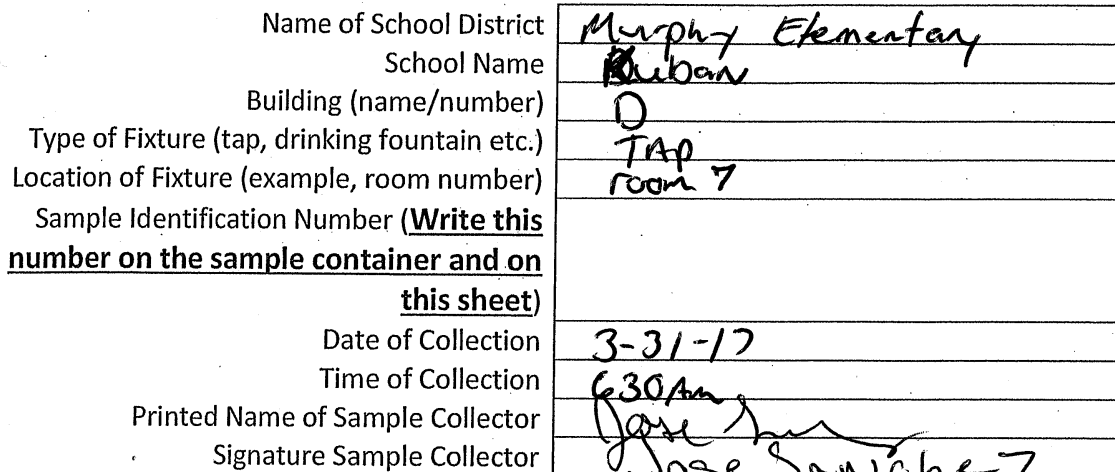 Name of School District Murphy Elementary
School Name Kuban
Building (name/number) D
Type of Fixture (tap, drinking fountain etc.) TAp
Location of Fixture (example, room number) room 7
Sample Identification Number (Write this
number on the sample container and on
this sheet)
Date of Collection 3-31-17
Time of Collection 630Am
Printed Name of Sample Collector Jose
Signature Sample Collector Jose